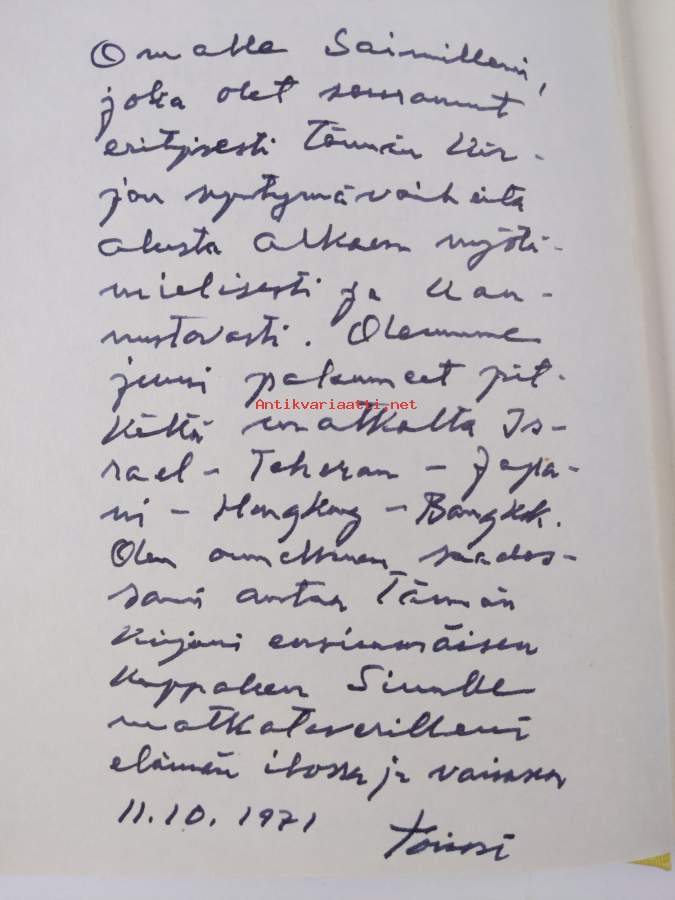 Omalle Saimilleni,
joka olet seurannut
erityisesti tämän kir-
jan syntymävaiheita
alusta alkaen myötä-
mielisesti ja kan-
nustavasti. Olemme
juuri palanneet pit-
kältä matkalta Is-
rael - Teheran - Japa-
ni - Hongkong - Bangkok.
Olen onnellinen saades-
sani antaa Tämän
kirjani ensimmäisen
kappaleen Sinulle
matkatoverilleni
elämän ilossa ja vaivassa
11.10.1971
Antikvariaatti.net